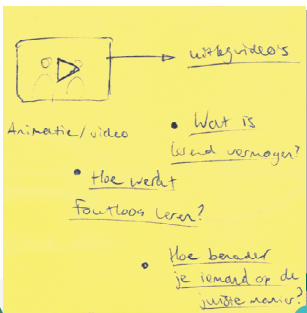 uitlegvideo's
Animatie/video
• Wat is
lerend vermogen?
• Hoe werkt
Foutloos leren?
• Hoe benader
je iemand op de
juiste manier?